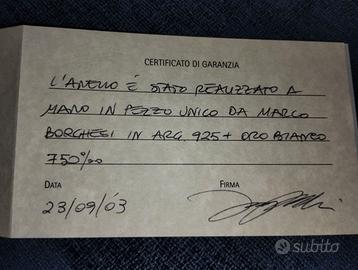 CERTIFICATO DI GARANZIA
L'ANELLO È STATO REALIZZATO A
MANO IN PEZZO UNICO DA MARCO
BORGHESI IN ARG. 925 + ORO BIANCO
750‰
DATA FIRMA
23/09/03
subito